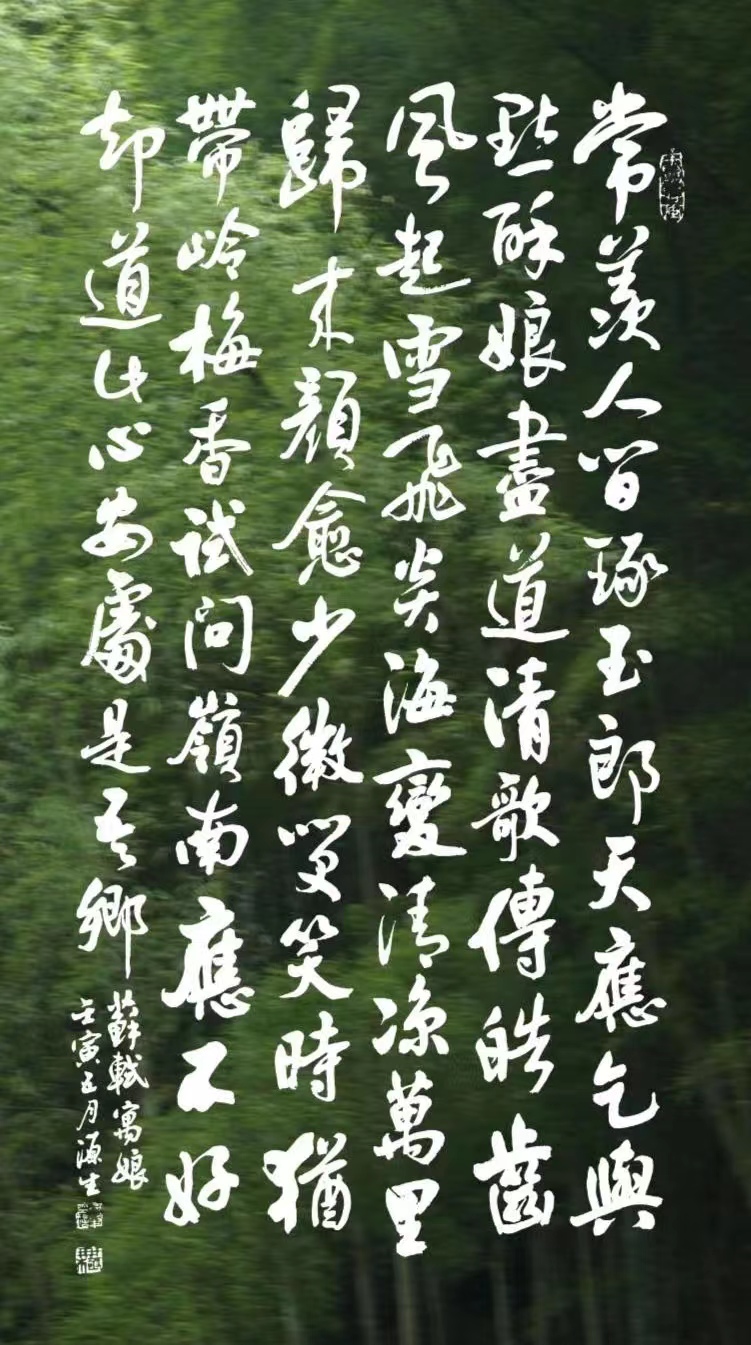 常羨人間琢玉郎天應乞與
點酥娘盡道清歌傳皓齒
風起雪飛炎海變清凉萬里
歸来顏愈少微笑笑時猶
帶岭梅香試問嶺南應不好
却道此心安處是吾鄉
蘇軾寓娘
壬寅五月源生